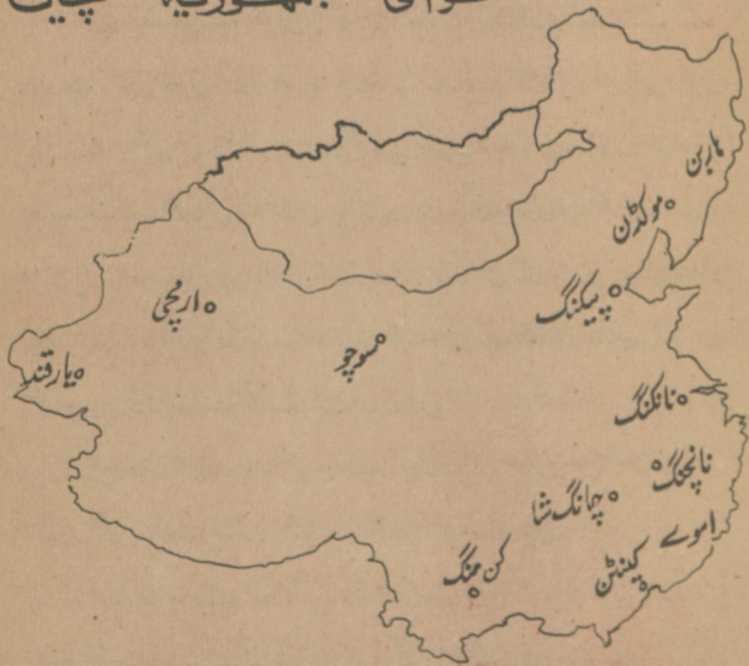 عوامی جمہوریہ چین
ہاربن
موکڈن
پیکنگ
ارمچی
سوچو
یارقند
نانکنگ
نانچنگ
چانگ شا
اموے
کن منگ
کینٹن